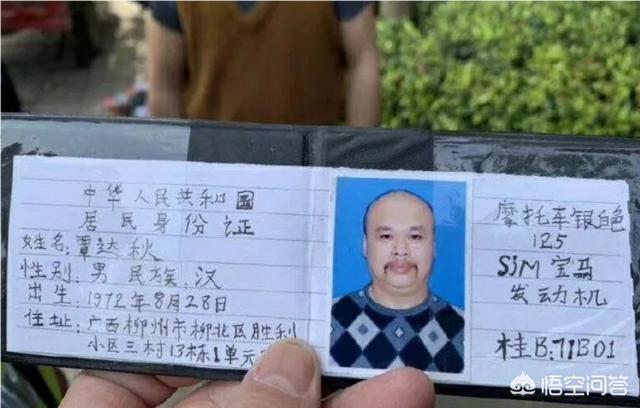 中华人民共和国
居民身份证
姓名:覃达秋
性别:男 民族:汉
出生:1972年8月28日
住址:广西柳州市柳北区胜利
小区三村13栋1单元
摩托车银色
125
SJM宝马
发动机
桂B:71B01
悟空问答